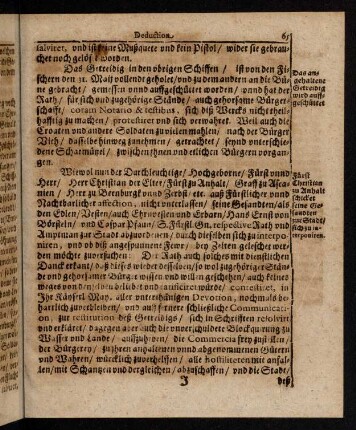 Deduction. 65
salviret, und ist keine Mußquete und kein Pistol/ wider sie gebrau-
chet noch gelöset worden.
Das Getreidig in den übrigen Schiffen/ ist von den Fi-
schern den 31. Maij vollend geholet/ und zu dem andern an die Bü-
ne gebracht/ gemessen unnd auffgeschüttet worden/ unnd hat der
Rath/ für sich und zugehörige Stände/ auch gehorsame Bürger-
schafft/ coram Notario & testibus, sich diß Wercks nicht theil-
hafftig zu machen/ protestiret und sich verwahret. Weil auch die
Croaten und andere Soldaten zu vielen mahlen/ nach der Bürger
Vieh/ dasselbe hinweg zunehmen/ getrachtet/ seynd unterschie-
dene Scharmützel/ zwischen ihnen und etlichen Bürgern vorgan-
gen.
Das ans
gehaltene
Getreidig
wird auff-
geschüttet
Wiewol nun der Durchleuchtige/ Hochgeborne/ Fürst unnd
Herr/ Herr Christian der Elter/ Fürst zu Anhalt/ Graff zu Asca-
nien/ Herr zu Berenburg und Zerbst/ etc. auß Fürstlicher unnd
Nachtbarlicher affection, nicht unterlassen/ seine Gesandten/ als
den Edlen/ Vesten/ auch Ehrnvesten und Erbarn/ Hans Ernst von
Börsteln/ und Caspar Pfaun/ S. Fürstl. Gn. respective Rath und
Amptman zur Stadt abzuordnen/ durch dieselben sich zu interpo-
niren, und ob diß angesponnene Fewr/ bey Zeiten gelescht wer-
den möchte zuversuchen: Der Rath auch solches mit dienstlichen
Danck erkant/ daß dieses wieder desselben/ so wol zugehörige Stän-
de und gehorsamer Bürger wissen und willen geschehen/ auch keines
weges von denselben beliebet und ratificiret würde/ contestiret, in
Ihr Käyserl. May. aller unterthänigen Devotion, nochmals be-
harrlich zuverbleiben/ und auff fernere schließliche Communicac-
ion, zur restitution deß Getreidigs/ sich in Schrifften resolvirt
und erkläret/ dagegen aber auch die unverschuldete Blockquirung zu
Wasser und Lande/ auffzuheben/ die Commercia frey zustellen/
der Bürgerey/ zu ihren anhaltenen unnd abgenommenen Gütern
und Wahren/ würcklich zuverhelffen/ alle hostiliteten mit anfal-
len/ mit Schantzen und dergleichen/ abzuschaffen/ und die Stadt/
Fürst
Christian
zu Anhalt
schicket
seine Ge-
sandten
zur Stadt/
sich zu in-
terponiren.
J deß